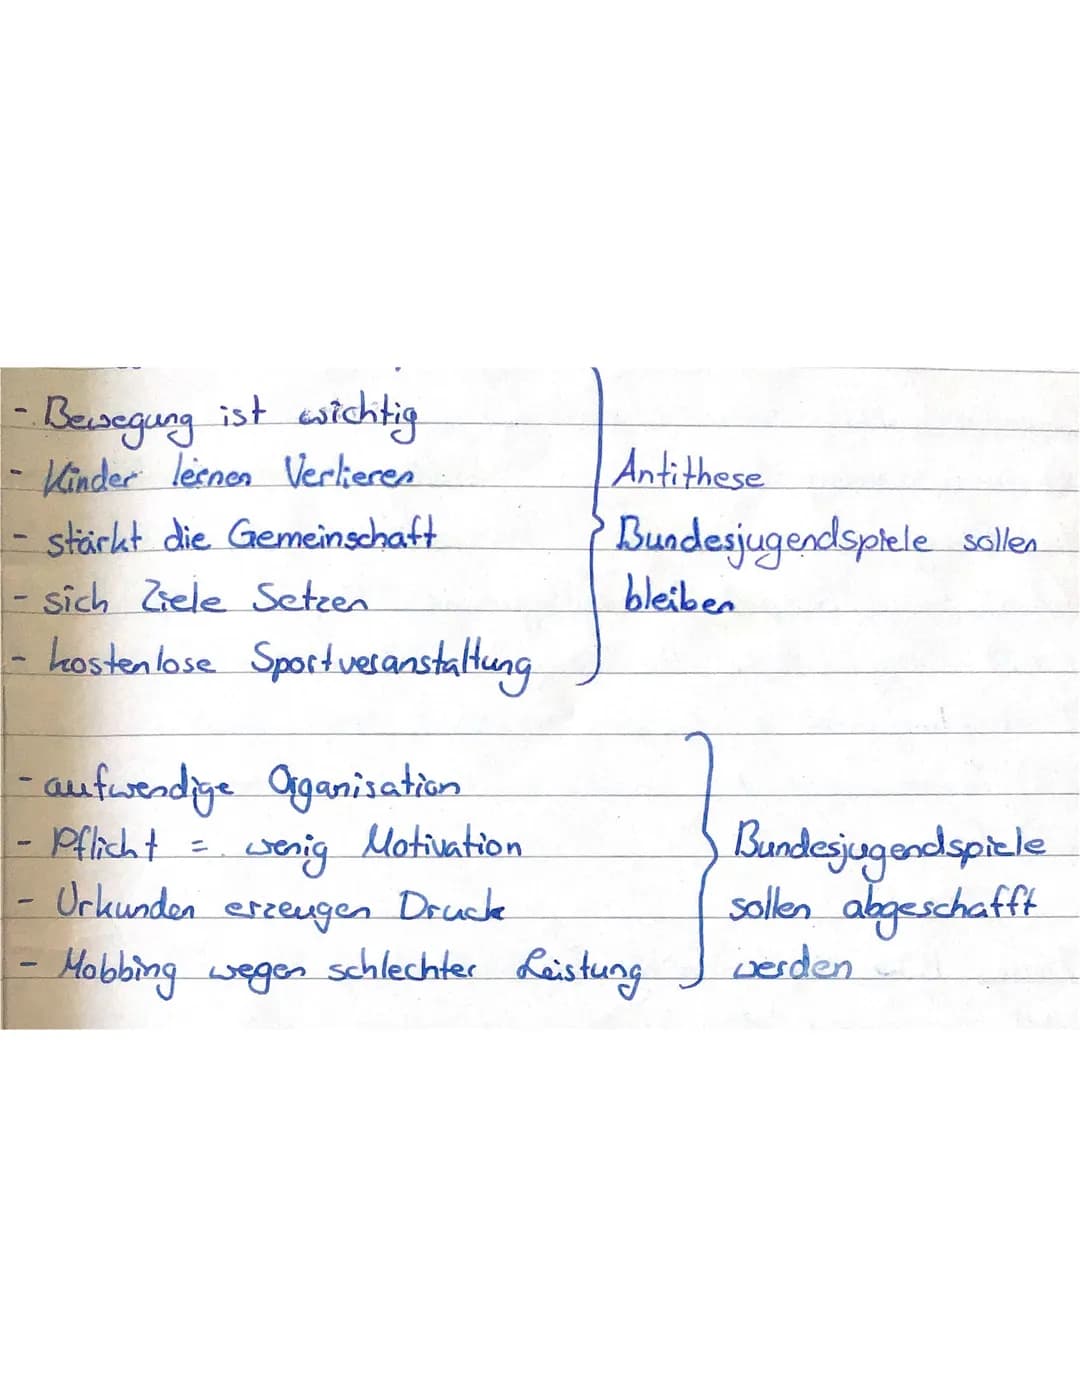 - Bewegung ist wichtig
- Kinder lernen Verlieren
Antithese
- stärkt die Gemeinschaft
Bundesjugendspiele sollen
- sich Ziele Setzen
bleiben
- kostenlose Sportveranstaltung
- aufwendige Organisation
- Pflicht = wenig Motivation
Bundesjugendspiele
- Urkunden erzeugen Druck
sollen abgeschafft
- Mobbing wegen schlechter Leistung
werden